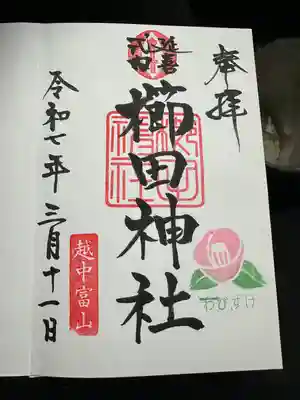 奉拝
延喜
式内
櫛田神社
櫛田神社
越中富山
わびすけ
令和七年三月十一日